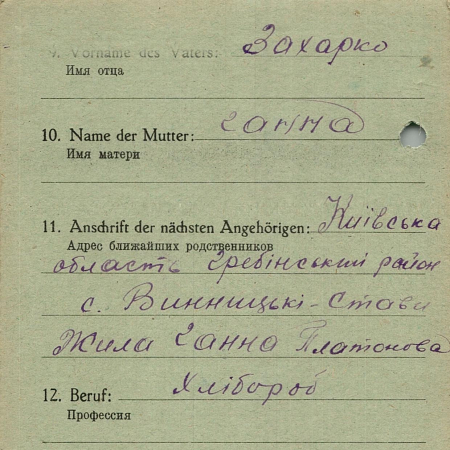 9. Vorname des Vaters: Захарко
Имя отца
10. Name der Mutter: Ганна
Имя матери
11. Anschrift der nächsten Angehörigen: Київська
Адрес ближайших родственников
область Гребінський район
с. Винницькі-Стави
Жила Ганна Платонова
12. Beruf: Хлібороб
Профессия